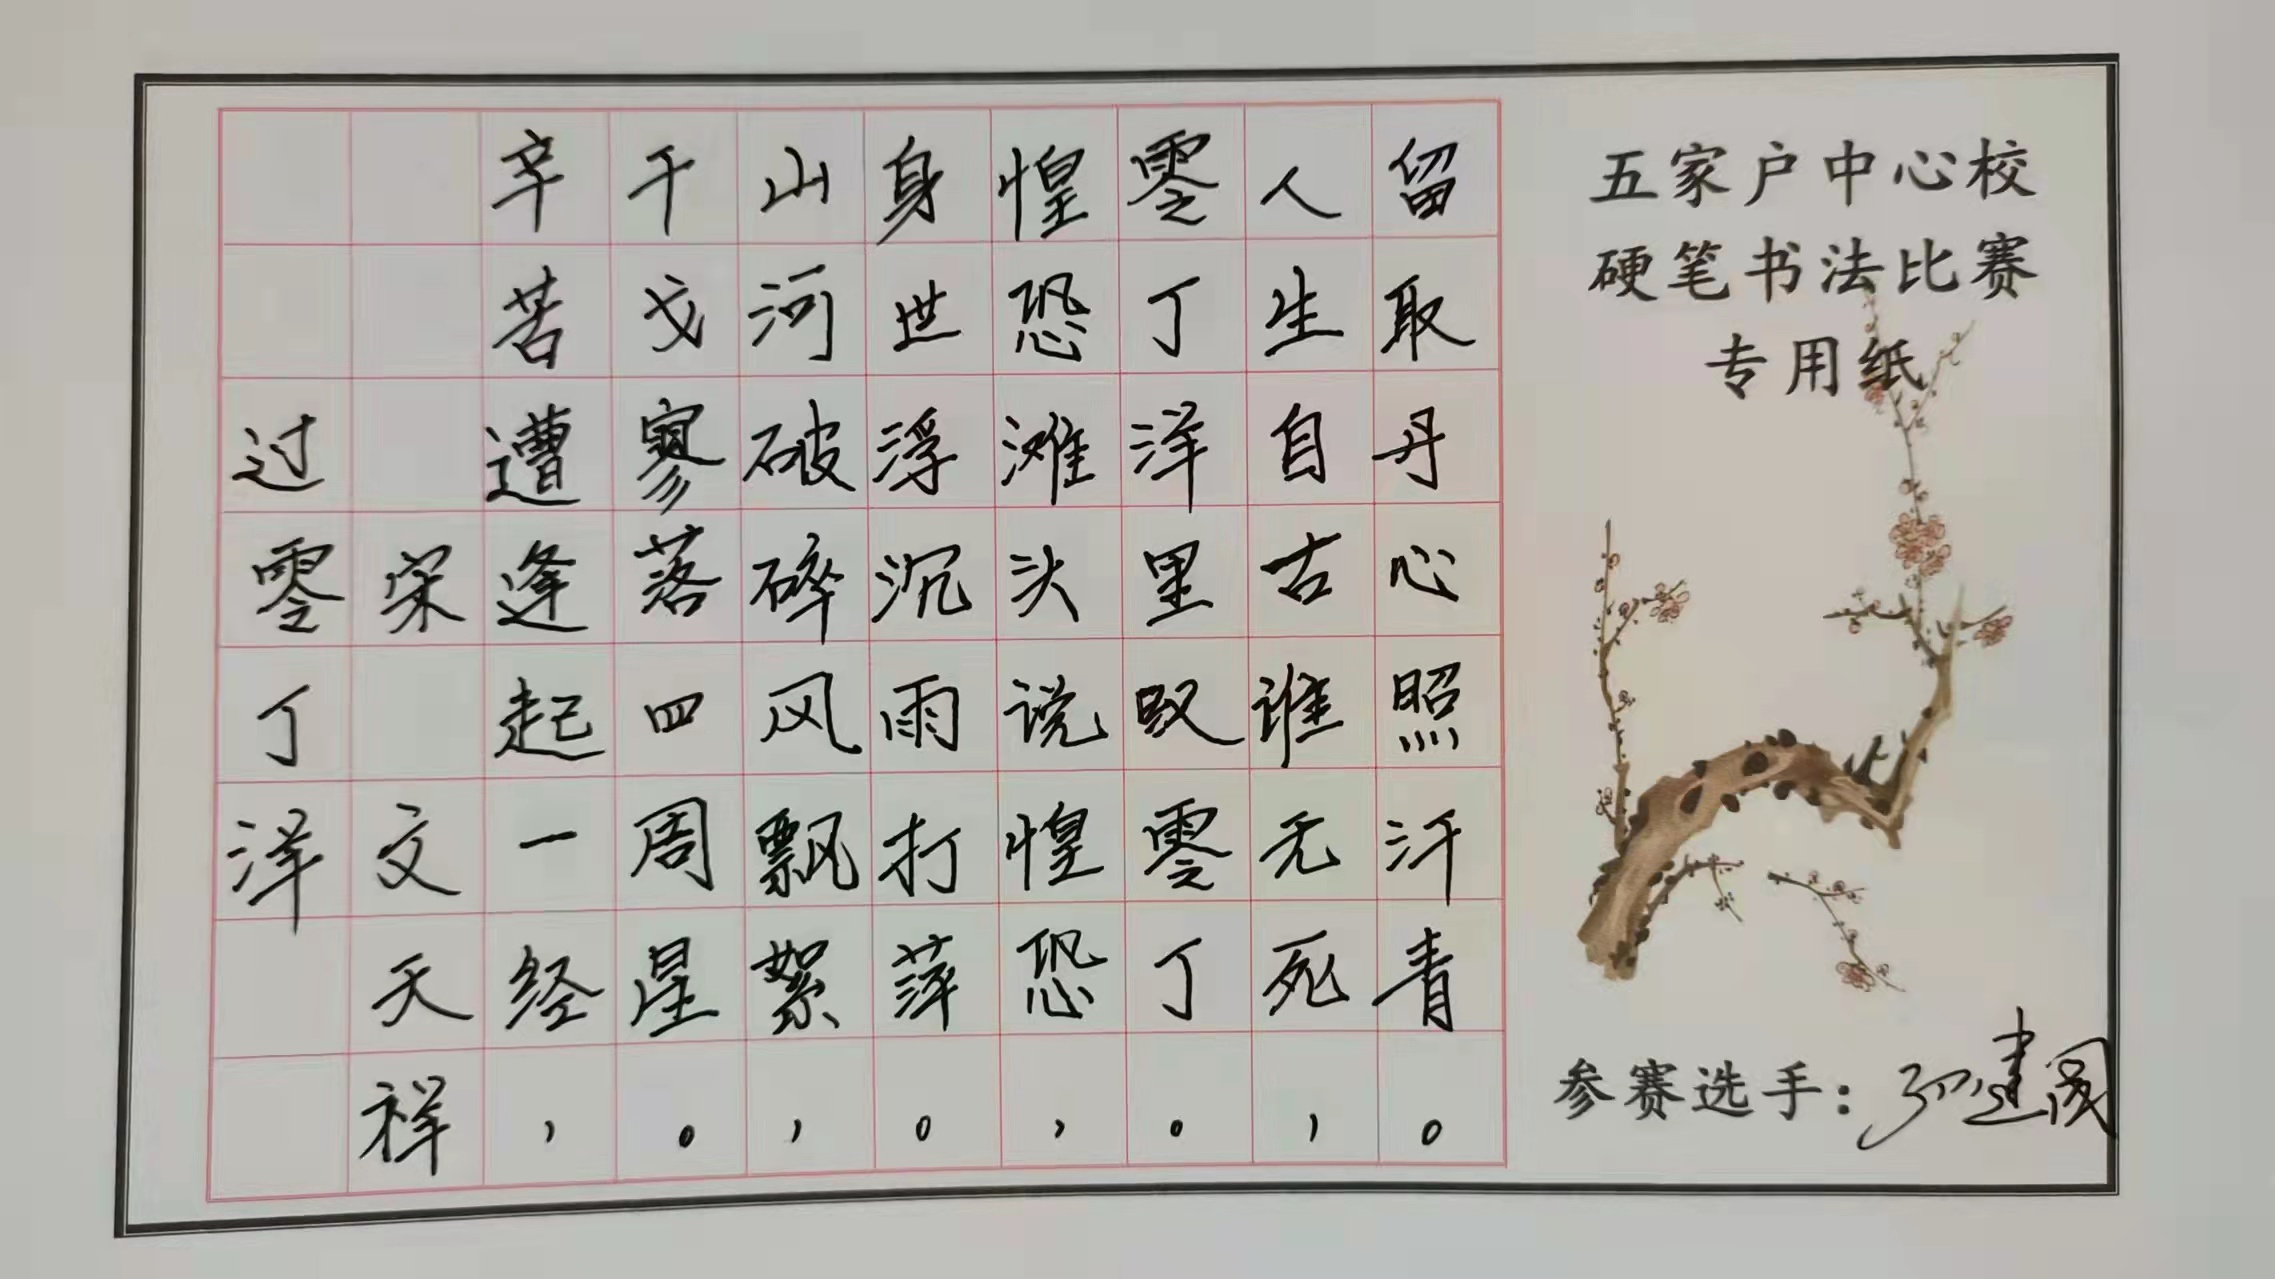 过零丁洋
宋 文天祥
辛苦遭逢起一经，
干戈寥落四周星。
山河破碎风飘絮，
身世浮沉雨打萍。
惶恐滩头说惶恐，
零丁洋里叹零丁。
人生自古谁无死，
留取丹心照汗青。
五家户中心校
硬笔书法比赛
专用纸
参赛选手：孙建国